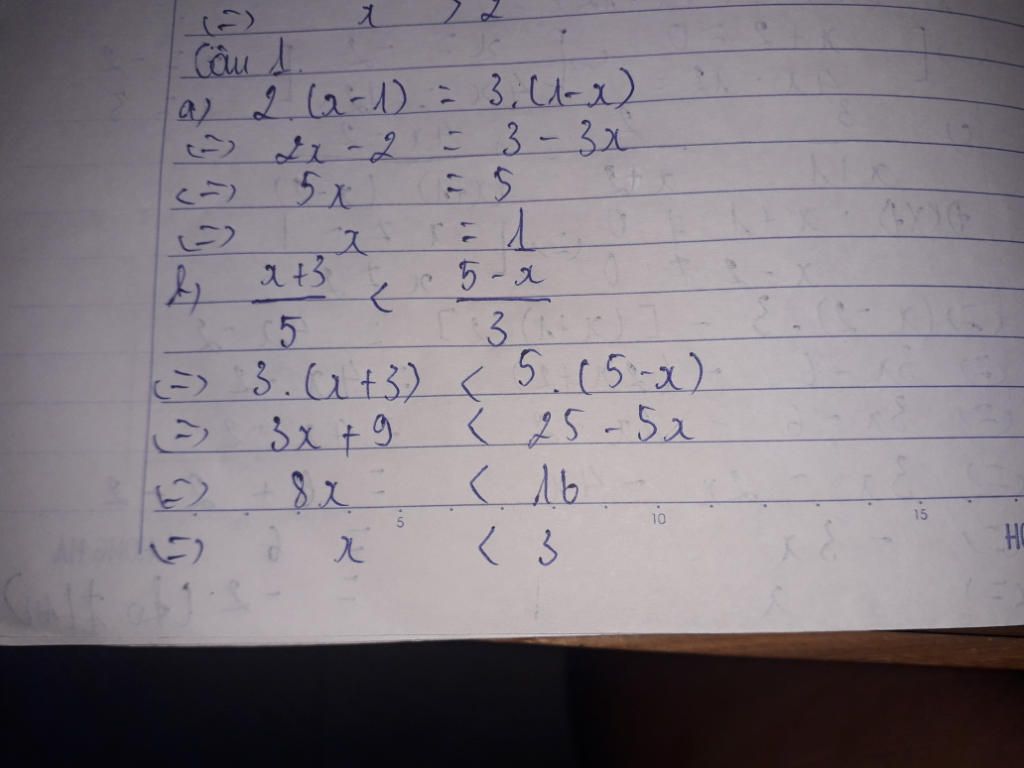 (=) x > 2
Câu 1.
a) 2.(x-1) = 3.(1-x)
(=) 2x - 2 = 3 - 3x
(=) 5x = 5
(=) x = 1
b) \frac{x+3}{5} < \frac{5-x}{3}
(=) 3.(x+3) < 5.(5-x)
(=) 3x + 9 < 25 - 5x
(=) 8x < 16
5 10 15
(=) x < 3